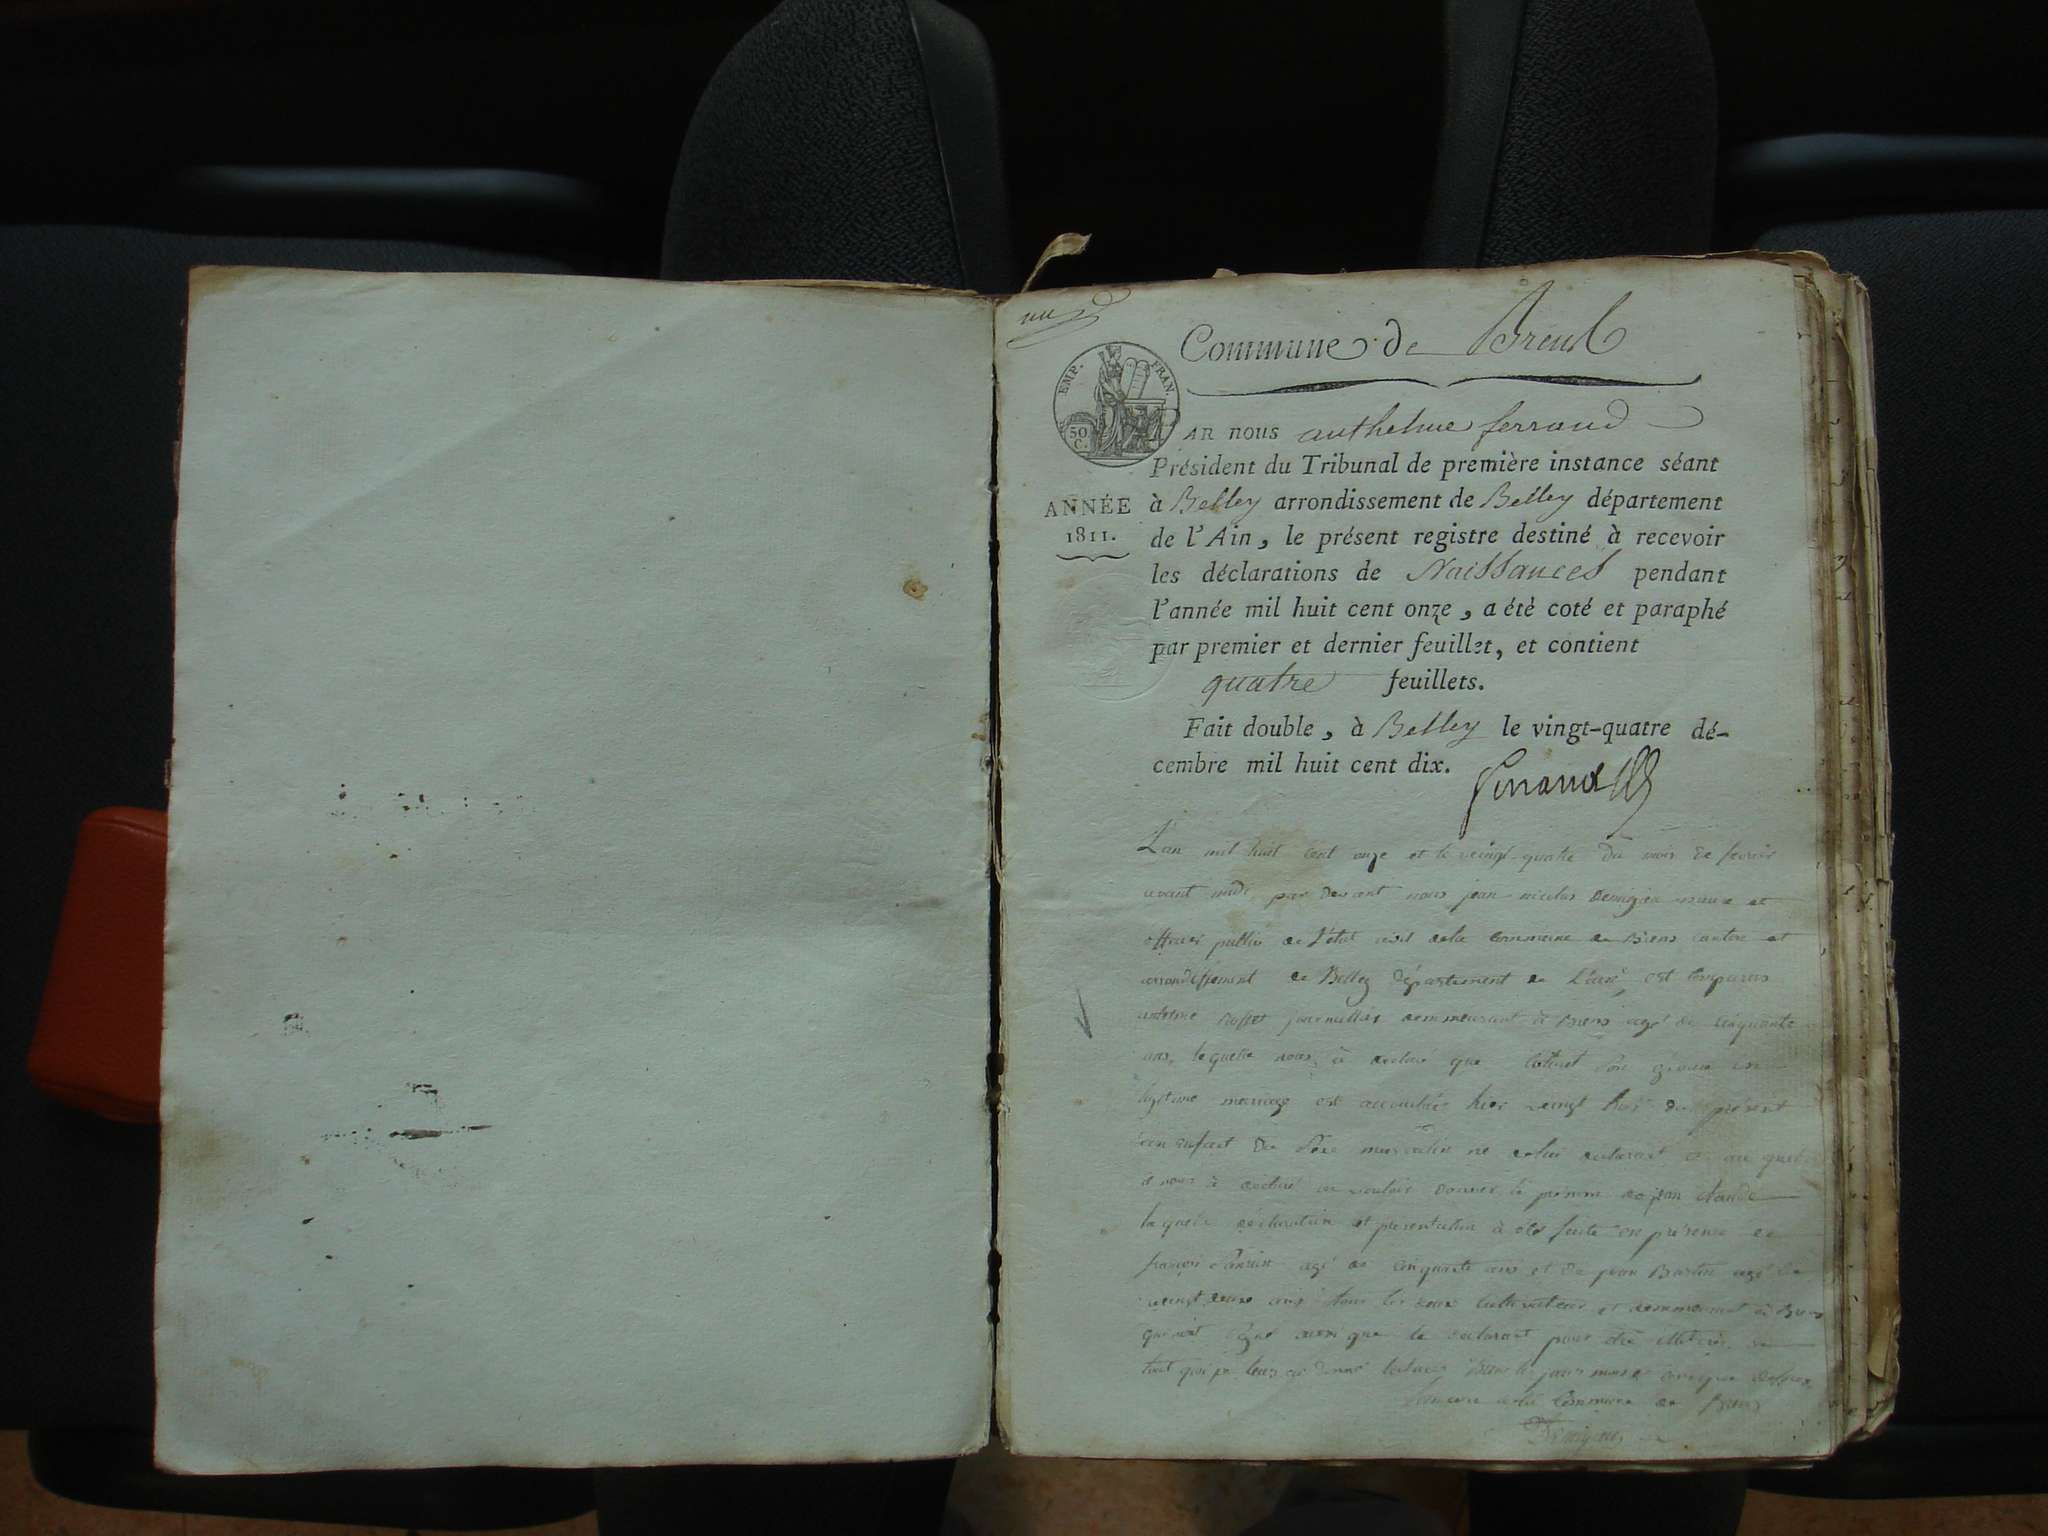 un
Commune de Brens
EMP. FRAN.
50 C.
AR nous anthelme ferrand
Président du Tribunal de première instance séant
ANNÉE
1811.
à Belley arrondissement de Belley département
de l'Ain, le présent registre destiné à recevoir
les déclarations de Naissances pendant
l'année mil huit cent onze, a été coté et paraphé
par premier et dernier feuillet, et contient
quatre feuillets.
Fait double, à Belley le vingt-quatre dé-
cembre mil huit cent dix.
ferrand
L'an mil huit cent onze et le veingt quatre du mois de fevrier
avant midi par devant nous jean nicolas maire et
officier public de l'état civil de la commune de Brens canton et
arrondissement de Belley département de L'ain, est comparu
journallier demmeurant à Brens agé de cinquante
ans, le quelle nous à declaré que
legitime mariage est accouchée hier veingt trois du présent
d'un enfant du sexe masculin né de lui declarant et au quel
nous à declaré vouloir donner le prénom de jean claude
la quelle déclaration et présentation à été faite en présence de
françois agé de cinquante ans et de jean agé de
veingt deux ans tous les deux cultivateurs et demmeurant à Brens
le declarant pour être
tout
maire de la Commune de Brens